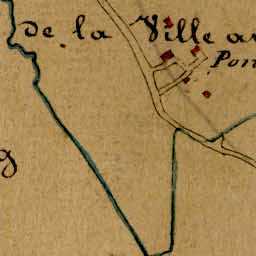 de la Ville
Pon
g